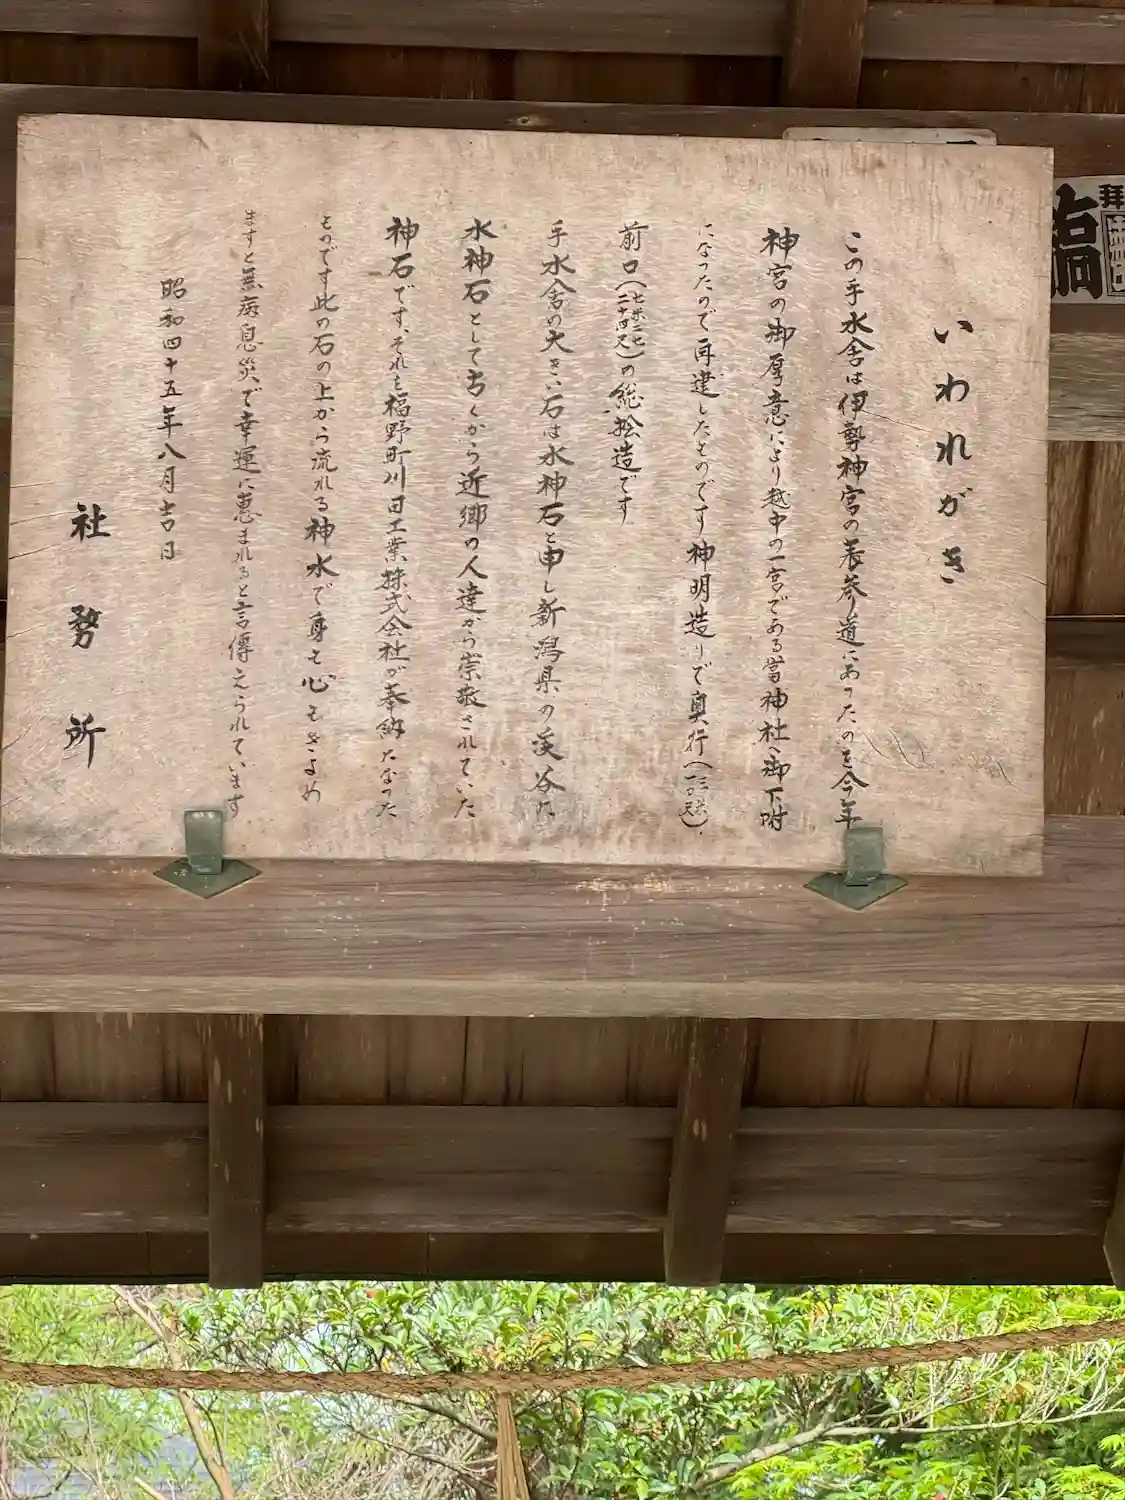 いわれがき
この手水舎は伊勢神宮の表参道にあったのを今年
神宮の御厚意により越中の一宮である當神社へ御下附
になったので再建したものです神明造りで奥行
前口(七米二七 二十四尺)の総桧造です
手水舎の大きい石は水神石と申し新潟県の渓谷に
水神石として古くから近郷の人達から崇敬されていた
神石です、それを福野町川田工業株式会社が奉納になった
ものです此の石の上から流れる神水で身も心もきよめ
ますと無病息災で幸運に恵まれると言傳えられています
昭和四十五年八月吉日
社務所
拝